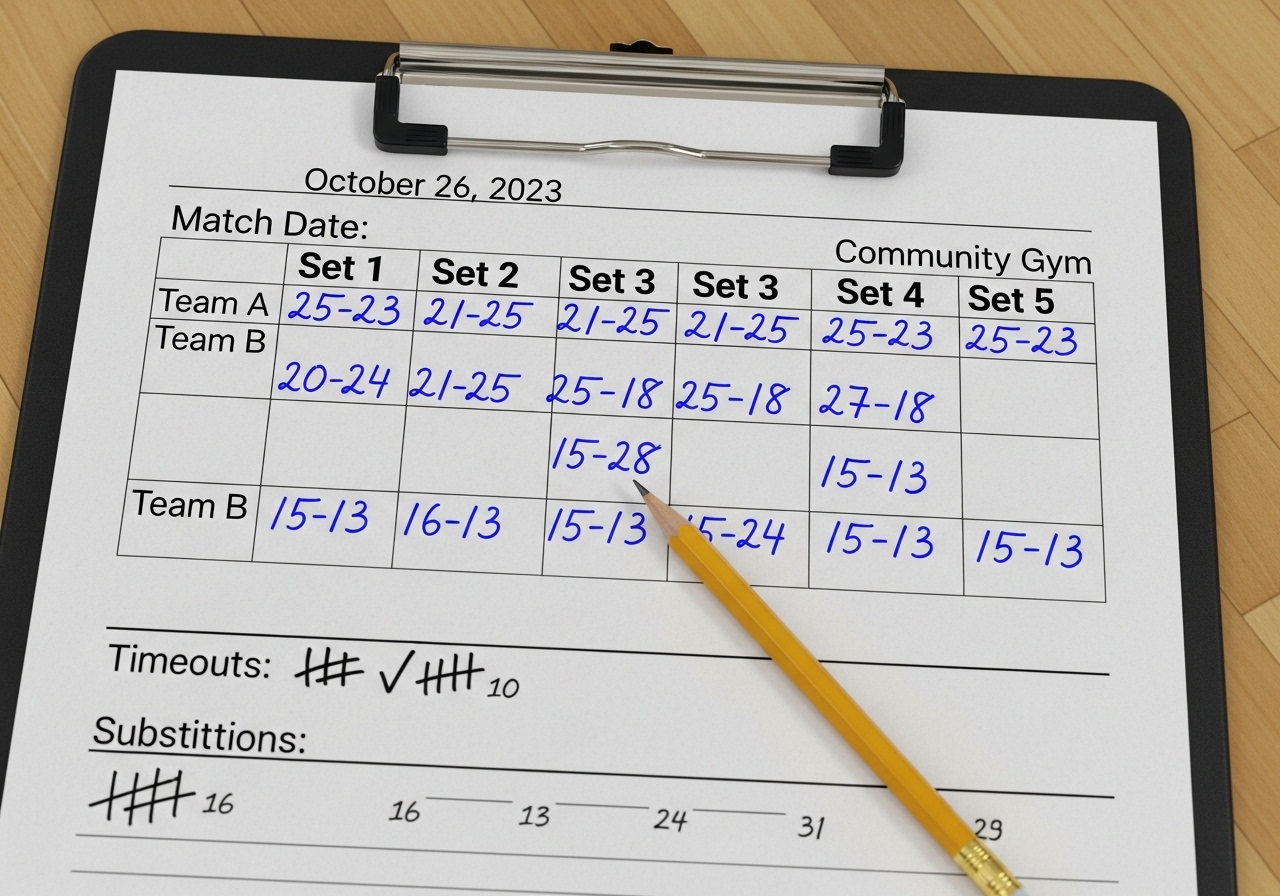 October 26, 2023
Match Date:
Community Gym
Set 1 Set 2 Set 3 Set 3 Set 4 Set 5
Team A 25-23 21-25 21-25 21-25 25-23 25-23
Team B 20-24 21-25 25-18 25-18 27-18
15-28 15-13
Team B 15-13 16-13 15-13 15-24 15-13 15-13
Timeouts: 10
Substittions:
16 16 13 24 31 29